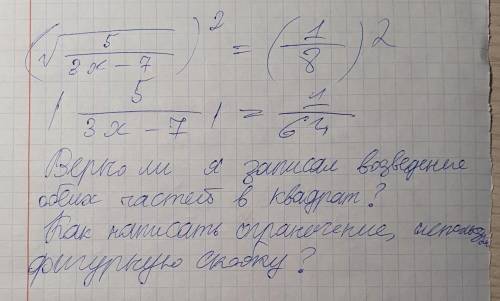 (√(5/(3x-7)))² = (1/8)²
| 5/(3x-7) | = 1/64
Верно ли я записал возведение
обеих частей в квадрат?
Как написать ограничение, используя
фигурную скобку?